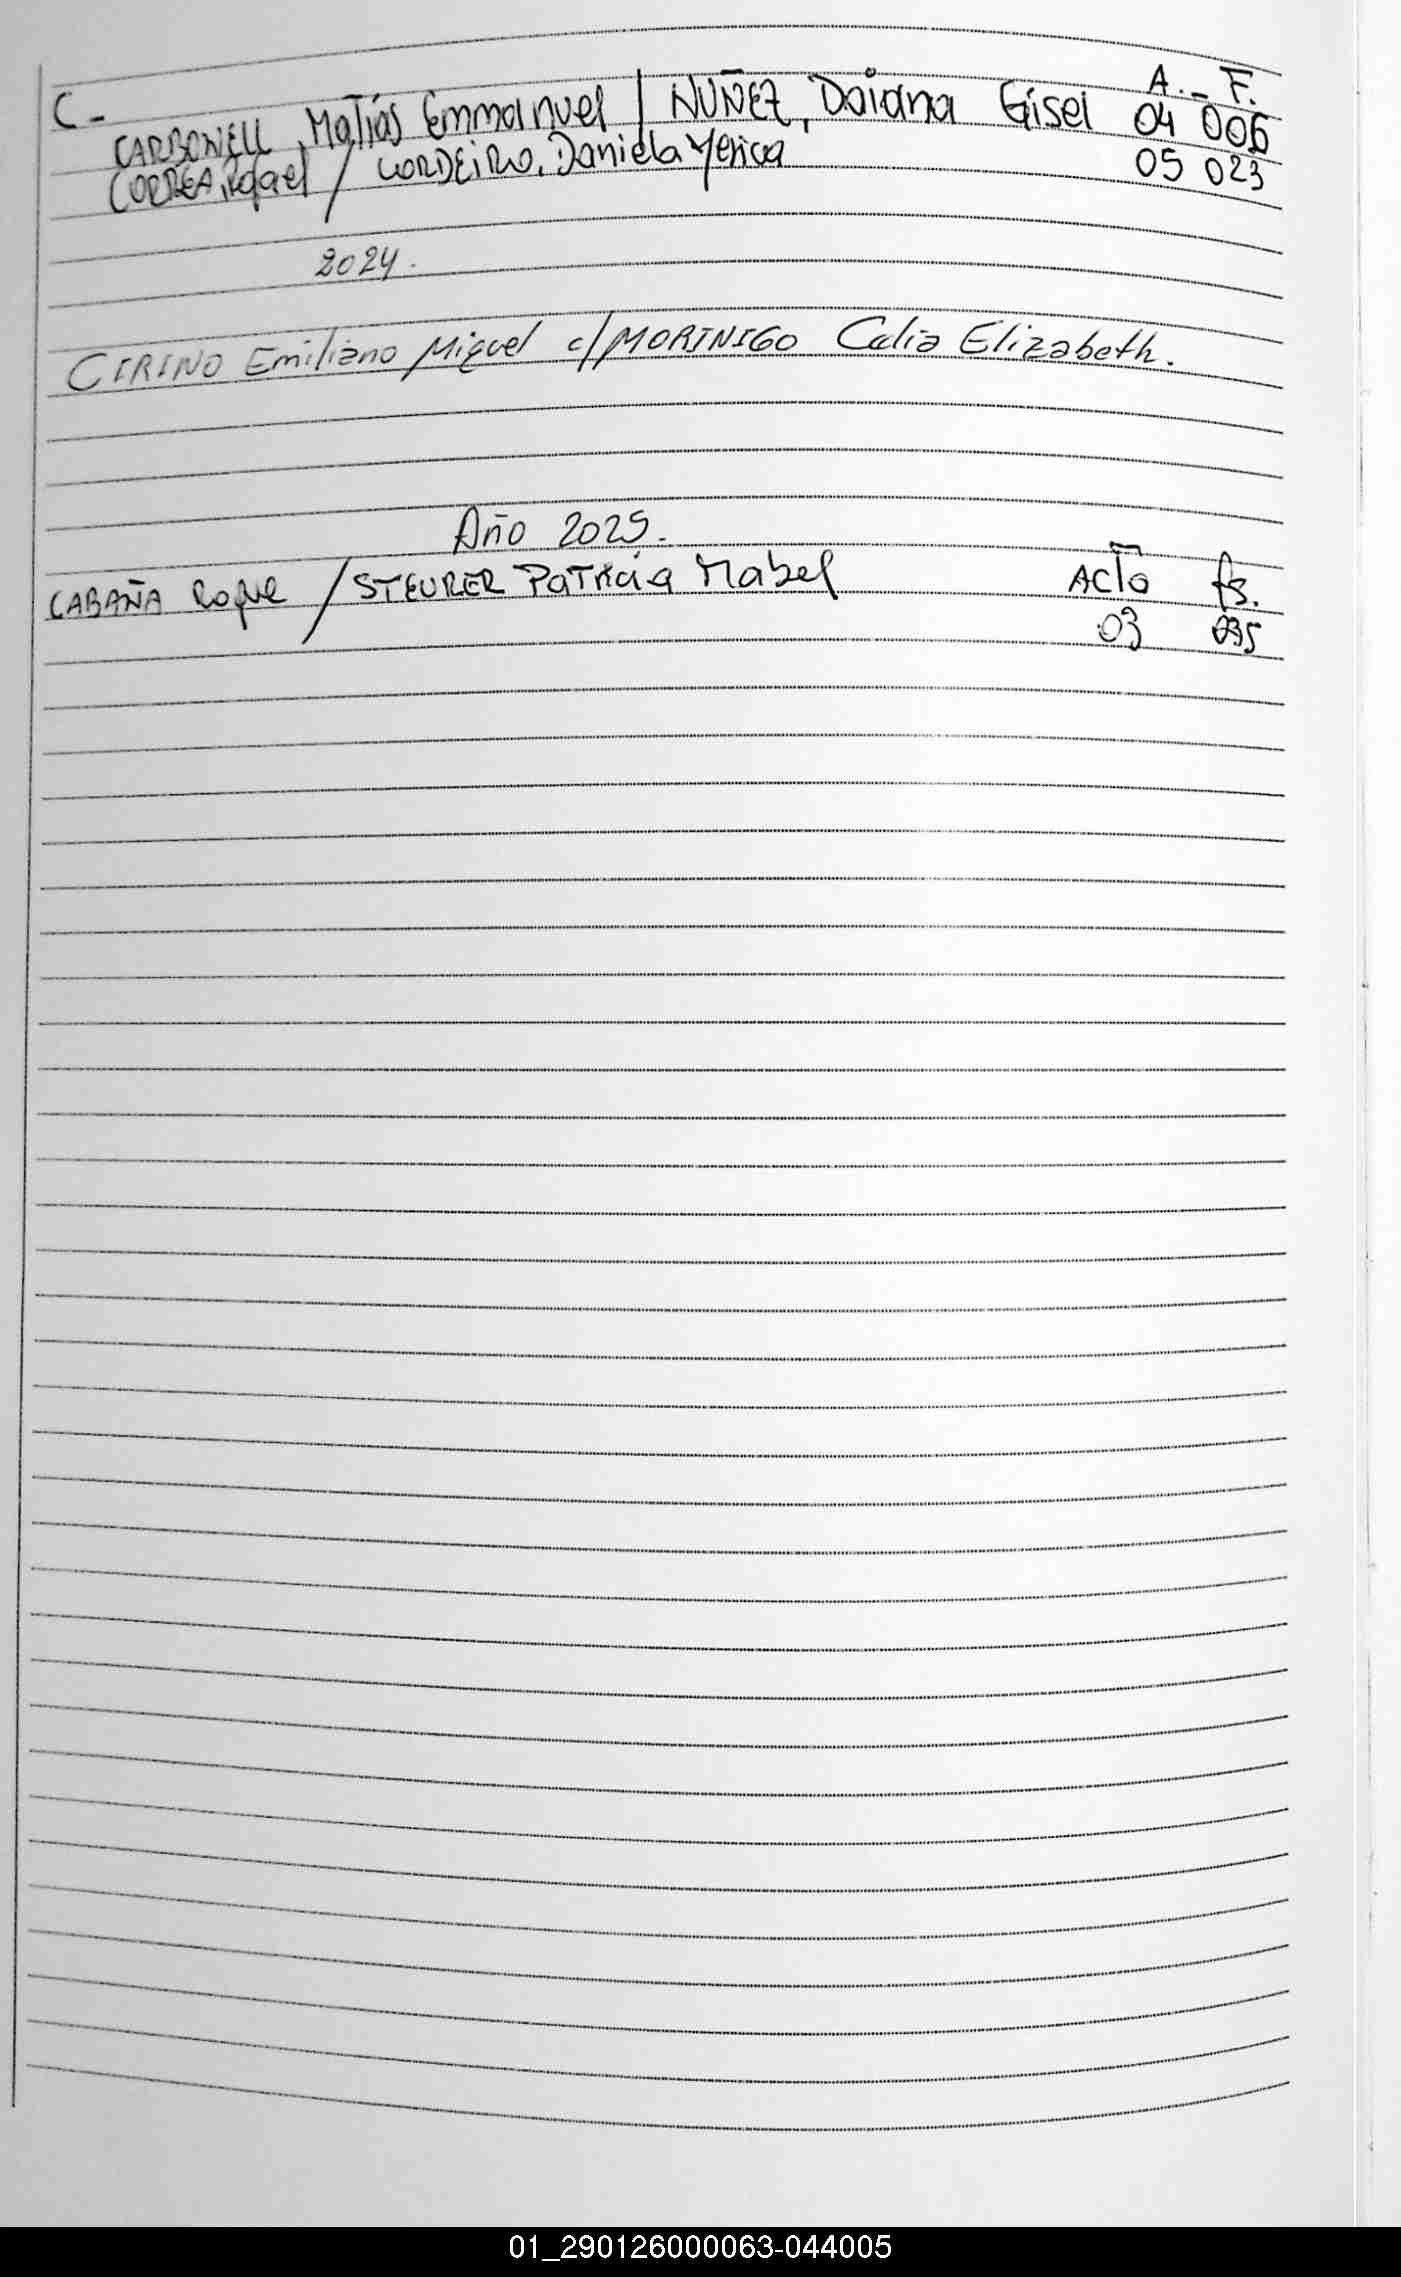 A. - F.
C-
CARBONELL, Matías Emmanuel / NUÑEZ, Daiana Gisel 04 006
CORREA, Rafael / CORDEIRO, Daniela Yesica 05 023
2024.
CIRINO Emiliano Miguel c/ MORINIGO Celia Elizabeth.
Año 2025.
CABAÑA Roque / STEURER Patricia Mabel ACTO fs.
03 035
01_290126000063-044005